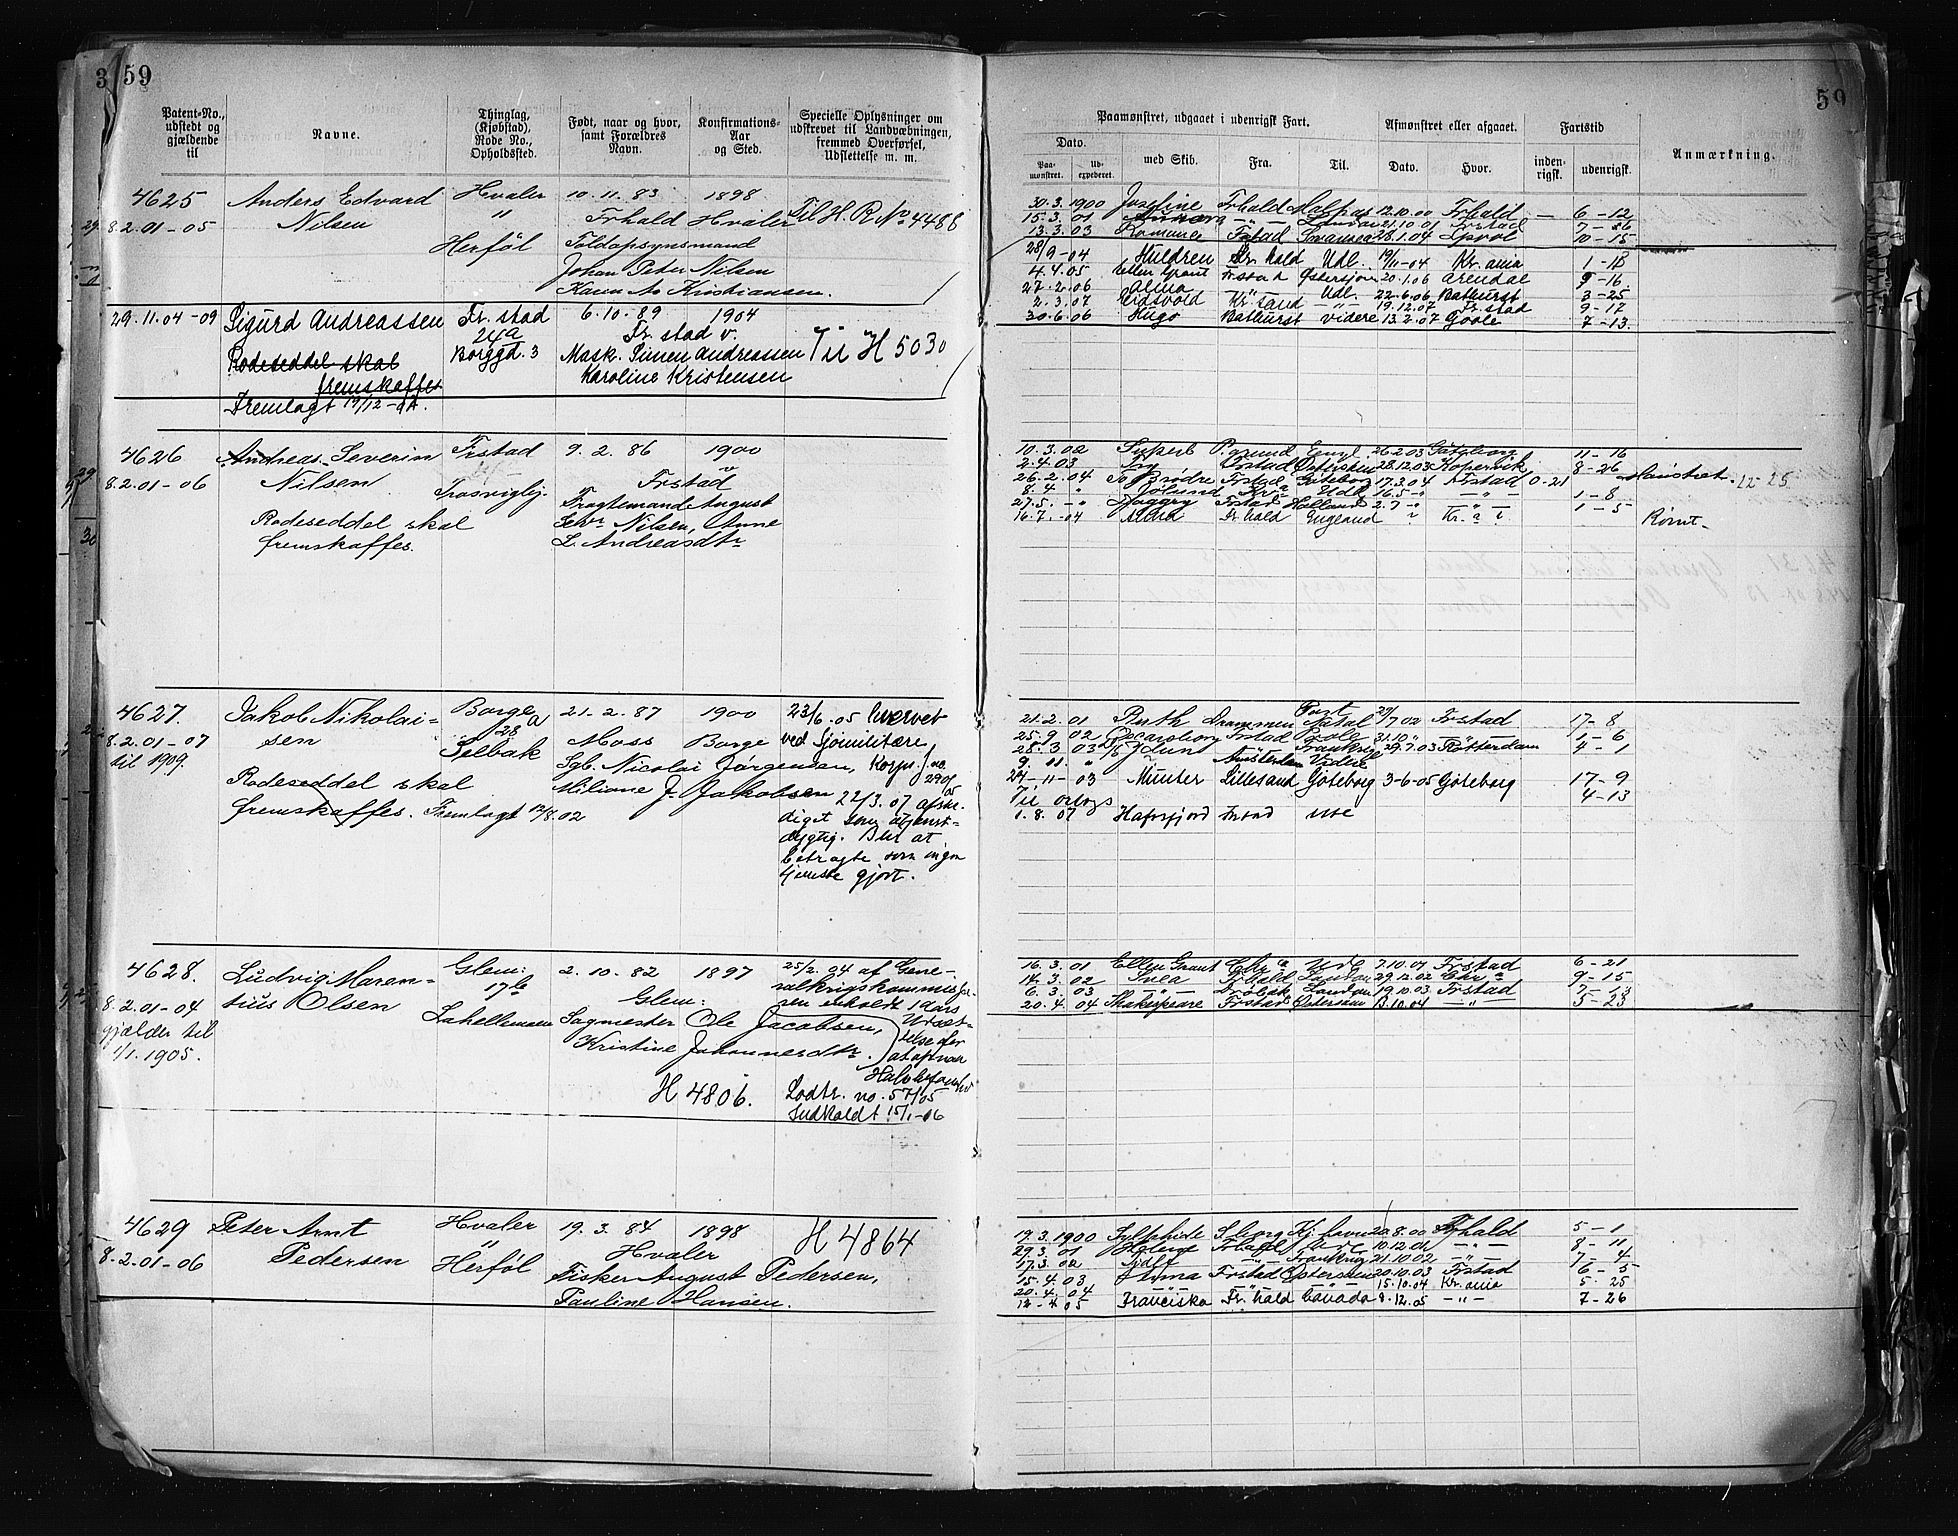 3 59
Patent-No., udstedt og gjældende til
Navne.
Thinglag, (Kjøbstad), Rode No., Opholdssted.
Født, naar og hvor, samt Forældres Navn.
Konfirmations-Aar og Sted.
Specielle Oplysninger om udskrevet til Landværnningen, fremmed Overførsel, Udslettelse m. m.
4625 Anders Edvard Hvaler 10.11.83 1898
8.2.01-05 Nilsen " Frhald Hvaler Til H. R. No 4488
Herføl Toldopsynsmand
Johan Peter Nilsen
Karen A. Kristiansen.
29.11.04-09 Sigurd Andreassen Fr.stad 6.10.89 1904
24a Fr.stad v.
Rodeseddel skal Borggd. 3 Mask. Simen Andreassen Til H 5030
fremskaffes Karoline Kristensen
Fremlagt 19/12-04.
4626 Andreas Severin Frstad 9.2.86 1900
8.2.01-06 Nilsen Trosvigbj. Frstad
Fragtemand August
Rodeseddel skal Sevr. Nilsen, Anne
fremskaffes. L. Andreasdtr
4627. Jakob Nikolai- Borge 21-2.87 1900 23/6.05 hvervet
8.2.01-07 sen 28a Moss Borge ved Sjømilitære
til 1909. Selbak Sgb. Nicolai Jørgensen, Korps. no. 29 05
Rodeseddel skal Miliane J. Jakobsen 22/3.07 afske-
fremskaffes. Fremlagt 12/8.02 diget som utjenst-
dygtig. Blir at
betragte som ingen
tjeneste gjort.
4628. Ludvig Maren- Glem: 2.10.82 1897 25/2.04 af Gene-
8.2.01-04 tius Olsen 17b Glem: ralkrigskommissæ-
ren erholdt 1 aars
gjælder til Lahellemoen Sagmester Ole Jacobsen, Udsæt-
1/1.1905. Kristine Johannesdtr. telse for
H 4806. Lodtr. no. 57/05
Indkaldt 15/1-06
4629 Peter Arnt Hvaler 19.3.84 1898 H 4864
8.2.01-06 Pedersen " Hvaler
Herføl Fisker August Pedersen,
Pauline Hansen.
59
Paamønstret, udgaaet i udenrigsk Fart.
Afmønstret eller afgaaet.
Fartstid
Anmærkning.
Dato.
Paamønstret. Udexpederet.
med Skib. Fra. Til. Dato. Hvor. indenrigsk. udenrigsk.
30.3.1900 Josefine Frhald 12.10.00 Frhald — 6-12
15.3.01 -"- London 21.10.01 Frstad 7-26
13.3.03 Romance Fstad Swansea 28.1.04 10-15
28/9-04 Huldren Fr.hald Udl. 19/11-04 Kr.ania 1-13
4.4.05 Ellen Grant Fr.stad Østersjøen 20.1.06 Arendal 9-16
27.2.06 Alma -"- Udl. 22.6.06 Bathurst 3-25
2.3.07 Eidsvold Kr.sand -"- 19.12.07 Fr.stad 9-17
30.6.06 Hugo Bathurst videre 13.2.07 Goole 7-13
10.3.02 Superb P.grund Engl. 26.2.03 Gøteborg 11-16
2.4.03 Frstad Østersjøen 28.12.03 Kopervik 8-26
26.2.04 To Brødre Frstad Gøteborg 17.3.04 Frstad 0-21 Mønstret. 12-25
8.4 " Kr.a Udl. 16.5-" -"- 1-8
27.5.-" Frstad Holland 2.7-" -"- 1-5
16.7.-04 Alma Fr.hald England Rømt
21.2.01 Ruth Drammen Port Natal 29/7 02 Frstad 17-8
25.9.02 Oscarsborg Frstad Poole 31.10" -"- 1-6
28.3.03 Frankrig 29.7.03 Rotterdam 4-1
9.11. " Amsterdam Videre
24-11-03 Munter Lillesand Gøteborg 3-6-05 Gøteborg 17-9
Til orlogs 4-13
1.8.07 Hafrsfjord Frstad Udl
16.3.01 Ellen Grant Chr.a Udl 7.10.01 Frstad 6-21
14.3.02 Svea Frhald London 29.12.02 Chr.a 9-15
6.3.03 -"- Drøbak London 19.10.03 Frstad 7-13
20.4.04 Shakespeare Frstad Østersøen 13.10.04 -"- 5-23
19.3.1900 Sylphide Kj.havn 20.8.00 Frhald 5-1
29.3.01 Frhald Udl 10.12.01 -"- 8-11
17.3.02 -"- Frankrig 21.10.02 -"- 7-4
15.4.03 Anna Frstad Østersøen 20.10.03 Frstad 6-5
20.4.04 -"- -"- -"- 15.10.04 Kr.ania 5 25
12-4 05 Franciska Fr.hald Canada 8.12.05 -"- 7-26